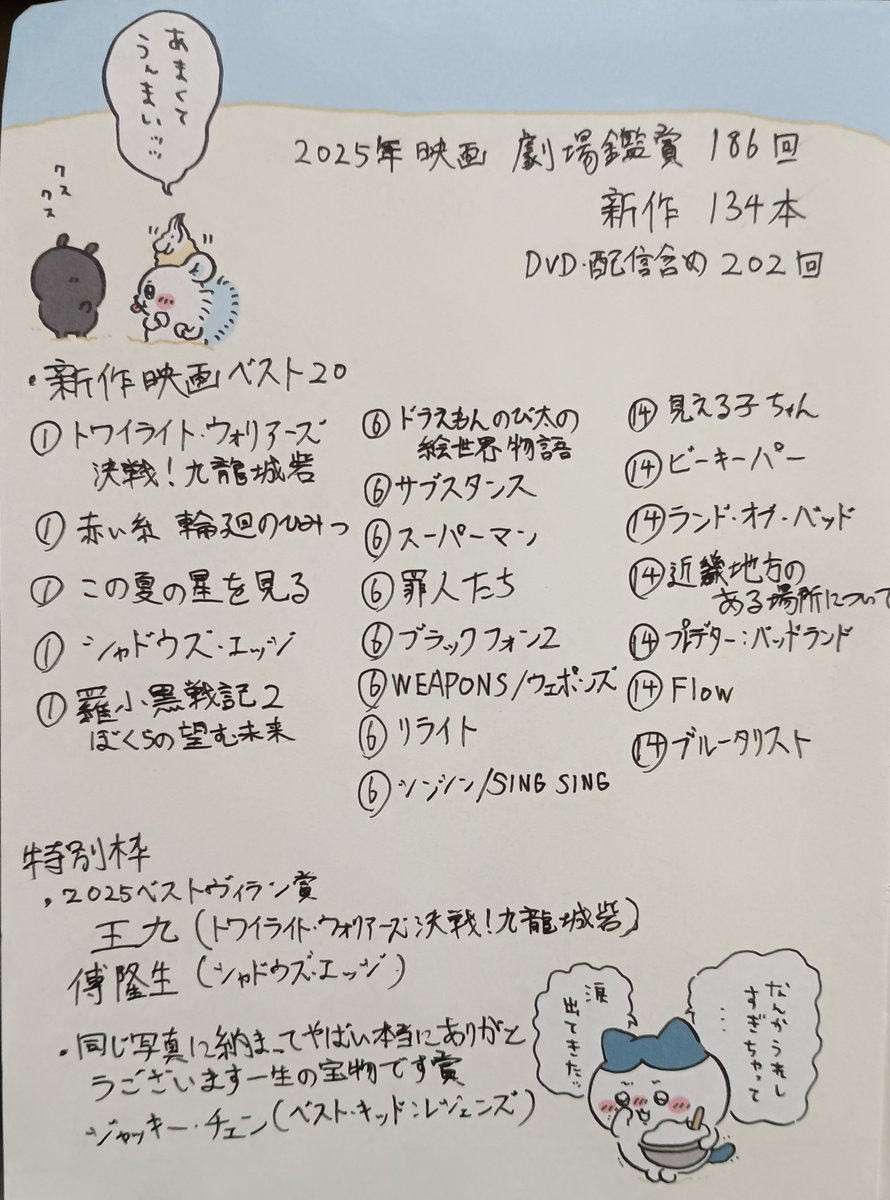 あまくて
うんまいッ…
クス
クス
2025年映画 劇場鑑賞 186回
新作 134本
DVD・配信含め 202回
・新作映画ベスト20
① トワイライト・ウォリアーズ
決戦!九龍城砦
① 赤い糸 輪廻のひみつ
① この夏の星を見る
① シャドウズ・エッジ
① 羅小黒戦記2
ぼくらの望む未来
⑥ ドラえもんのび太の
絵世界物語
⑥ サブスタンス
⑥ スーパーマン
⑥ 罪人たち
⑥ ブラックフォン2
⑥ WEAPONS/ウェポンズ
⑥ リライト
⑥ シンシン/SING SING
⑭ 見える子ちゃん
⑭ ビーキーパー
⑭ ランド・オブ・バッド
⑭ 近畿地方の
ある場所について
⑭ プレデター:バッドランド
⑭ Flow
⑭ ブルータリスト
特別枠
・2025ベストヴィラン賞
王九(トワイライト・ウォリアーズ決戦!九龍城砦)
傅隆生(シャドウズ・エッジ)
・同じ写真に納まってやばい本当にありがと
うございます一生の宝物です賞
ジャッキー・チェン(ベスト・キッド:レジェンズ)
なんかうれし
すぎちゃって
…
涙
出てきたッ…